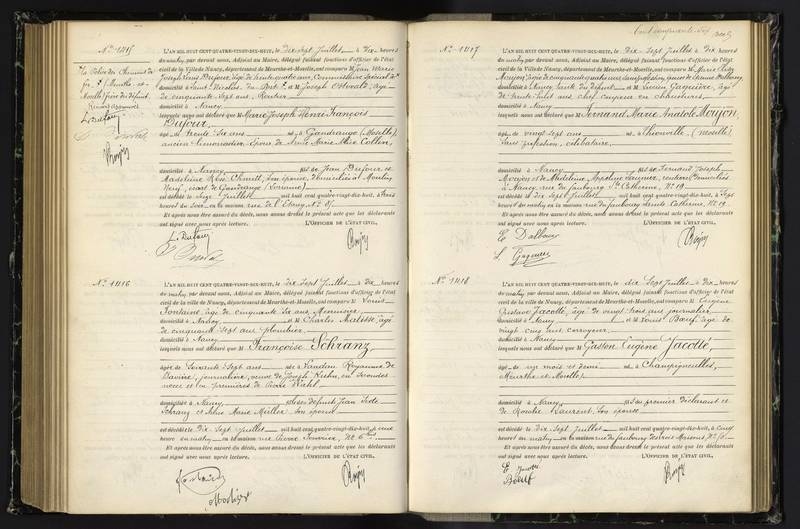 No 1415
L'AN MIL HUIT CENT QUATRE-VINGT-DIX-HUIT, le dix-sept Juillet à dix heures
du matin, par devant nous, Adjoint au Maire, délégué faisant fonctions d'officier de l'état
civil de la Ville de Nancy, département de Meurthe-et-Moselle, ont comparu M Jean Marie
Joseph Louis Dufour, âgé de trente quatre ans, Commissaire Spécial
domicilié à Saint Nicolas du Port & M Joseph Ostwald, âgé
de cinquante sept ans, Rentier
domicilié à Nancy
lesquels nous ont déclaré que Marie Joseph Henri François
Dufour
âgé de trente six ans né à Gandrange (Moselle),
ancien époux de Marie Alice Collin,
domicilié à Nancy fils de Jean Dufour et
Madeleine Rose Schmitt, son épouse, domiciliés à Moulin
Neuf, écart de Gandrange (Lorraine)
est décédé le seize Juillet mil huit cent quatre-vingt-dix-huit, à trois
heures du soir en sa maison rue de l'Etang, No
Et après nous être assuré du décès, nous avons dressé le présent acte que les déclarants
ont signé avec nous après lecture. L'OFFICIER DE L'ÉTAT CIVIL,
L. Dufour
No 1416
L'AN MIL HUIT CENT QUATRE-VINGT-DIX-HUIT, le dix-sept Juillet à dix heures
du matin, par devant nous, Adjoint au Maire, délégué faisant fonctions d'officier de l'état
civil de la ville de Nancy, département de Meurthe-et-Moselle, ont comparu M
Fontaine, âgé de cinquante six ans, Menuisier
domicilié à Nancy & M Charles Matisse, âgé
de cinquante sept ans, plombier
domicilié à Nancy
lesquels nous ont déclaré que M Françoise Schranz
âgée de soixante sept ans née à Landau Royaume de
Bavière, journalière, veuve de Joseph Kuhn, en secondes
noces et en premières de Pierre Kiehl
domiciliée à Nancy fille des défunts Jean
Schranz et Marie Müller son épouse
est décédée le dix-sept Juillet mil huit cent quatre-vingt-dix-huit, à une
heure du matin en sa maison rue Pierre Fourrier, No 6
Et après nous être assuré du décès, nous avons dressé le présent acte que les déclarants
ont signé avec nous après lecture. L'OFFICIER DE L'ÉTAT CIVIL,
Cent cinquante-six
No 1417
L'AN MIL HUIT CENT QUATRE-VINGT-DIX-HUIT, le dix-sept Juillet à dix heures
du matin, par devant nous, Adjoint au Maire, délégué faisant fonctions d'officier de l'état
civil de la Ville de Nancy, département de Meurthe-et-Moselle, ont comparu M
Moujon, âgée de cinquante quatre ans, sans profession, épouse de Etienne Dalbourg,
domiciliée à Nancy, tante du défunt & M Lucien Gaguière, âgé
de trente huit ans chef coupeur en chaussures
domicilié à Nancy
lesquels nous ont déclaré que M Armand Marie Anatole Moujon,
âgé de vingt sept ans né à Thionville, (Moselle)
sans profession, célibataire,
domicilié à Nancy fils de Fernand Joseph
Moujon et de Madeleine Appoline rentiers domiciliés
à Nancy, rue du faubourg Ste Catherine, No 19
est décédé le dix sept Juillet mil huit cent quatre-vingt-dix-huit, à sept
heures du matin en sa maison rue du faubourg Sainte Catherine, No 19
Et après nous être assuré du décès, nous avons dressé le présent acte que les déclarants
ont signé avec nous après lecture. L'OFFICIER DE L'ÉTAT CIVIL,
E Dalbourg
L. Gaguière
No 1418
L'AN MIL HUIT CENT QUATRE-VINGT-DIX-HUIT, le dix Sept Juillet à dix heures
du matin, par devant nous, Adjoint au Maire, délégué faisant fonctions d'officier de l'état
civil de la ville de Nancy, département de Meurthe-et-Moselle, ont comparu M Eugène
Gustave Jacotté, âgé de vingt trois ans journalier
domicilié à Nancy & M Louis Bœuf, âgé de
vingt cinq ans, corroyeur
domicilié à Nancy
lesquels nous ont déclaré que M Gaston Eugène Jacotté,
âgé de un mois et demi né à Champigneulles,
Meurthe et Moselle,
domicilié à Nancy fils du premier déclarant et
de Rosalie Laurent, son épouse
est décédé le dix-sept Juillet mil huit cent quatre-vingt-dix-huit, à cinq
heures du matin en sa maison rue du faubourg des trois Maisons, No
Et après nous être assuré du décès, nous avons dressé le présent acte que les déclarants
ont signé avec nous après lecture. L'OFFICIER DE L'ÉTAT CIVIL,
E Jacotté
Bœuf